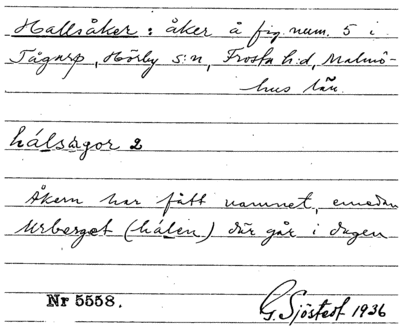 Hallsåker: åker å fig. num. 5 i
Tågarp, Hörby s:n, Frosta h:d, Malmö-
hus län.
hálsågor 2
Åkern har fått namnet, emedan
Urberget (hálen) där går i dagen
Nr 5558.
G. Sjöstedt 1936